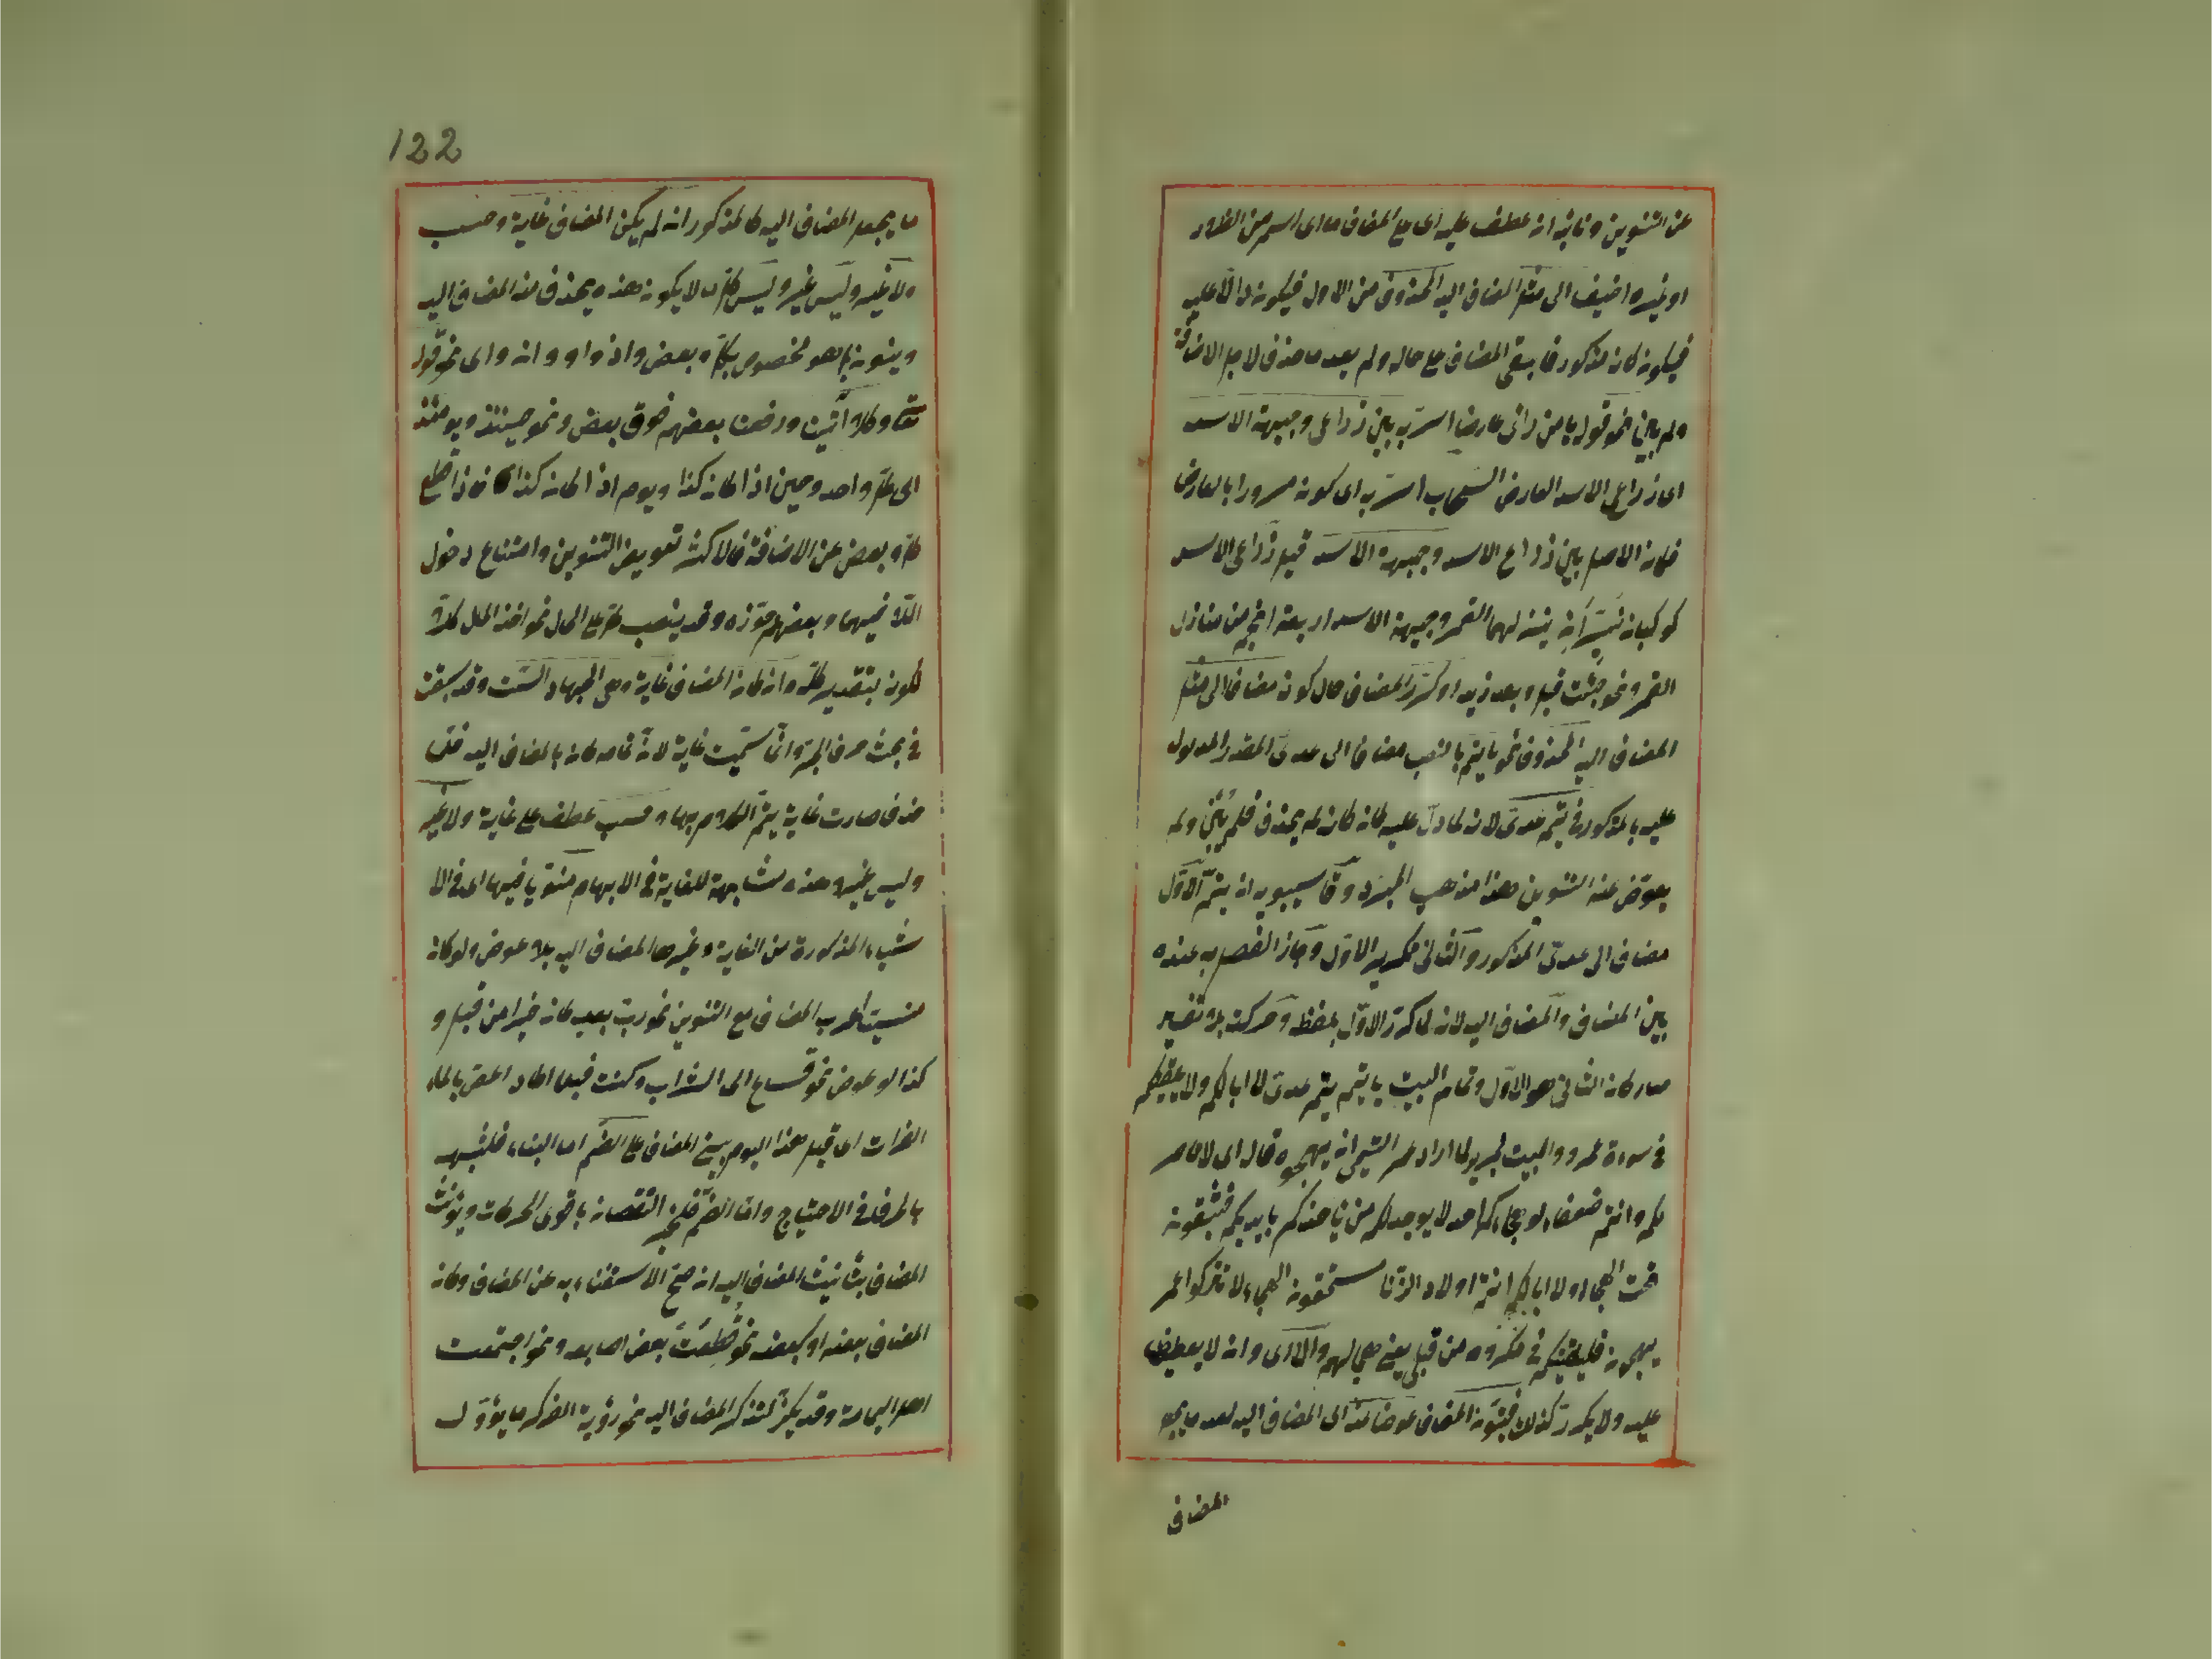 عن التنوين ونائبه ان عطف عليه اى على المضاف ما اى اسم من الظروف
او غيره اضيف الى مثل المضاف اليه المحذوف من الاول فيكون دالا عليه
فيكون كان مذكور فابقى المضاف على حاله ولم يعد ما حذف لاجل الاضافة
ولم يبن نحو قول يا من رأى عارضا اسر به بين ذراعى وجبهة الاسد
اى ذراعى الاسد العارض السحاب اسر به اى كونه مسرورا بالعارض
فان الاصل بين ذراع الاسد وجبهة الاسد قيل ذراعى الاسد
كوكبان نيران ينزلهما القمر وجبهة الاسد اربعة انجم من منازل
القمر ونحو جئت قبل وبعد زيد او كرر المضاف حال كونه مضافا الى مثل
المضاف اليه المحذوف نحو يا تيم بالنصب مضافا الى عدى المقدر المدلول
عليه بالمذكور فى تيم عدى لانه لما دل عليه كان كانه لم يحذف فلم يبن ولم
يعوض عنه التنوين هذا مذهب المبرد وقال سيبويه ان تيم الاول
مضاف الى عدى المذكور والثانى تكرير الاول وجاز الفصل به عنده
بين المضاف والمضاف اليه لانه لما كرر الاول بلفظه وحركته بلا تغيير
صار كان الثانى هو الاول وتمام البيت يا تيم تيم عدى لا ابا لكم ولا يلقينكم
فى سوءة عمر والبيت لجرير لما اراد عمر التيمى ان يهجوه قال اى لا ناصر
لكم وانتم ضعفاء لو هجاكم احد لا يوجد لكم من ياخذكم بايديكم فتبقون
تحت الهجاء ولا ابا لكم انتم اولاد الزنا مستحقون الهجاء لا تتركوا عمر
يهجونى فليلقينكم فى مكروه من قبلى يعنى هجائهم والا اى وان لا يعطف
عليه ولا يكرر كذلك فينون المضاف عوضا عنه اى المضاف اليه لعدم ما يجعل
المضاف
122
ما يجعل المضاف اليه كالمذكور ان لم يكن المضاف غاية وحسب
ولا غير وليس غير وليس كل ما لا يكون هذه يحذف منه المضاف اليه
وينون بل هو مخصوص بكل وبعض واذ واو وان واى نحو قوله
تعالى وكلا آتينا ورفعنا بعضهم فوق بعض ونحو حينئذ ويومئذ
اى كل واحد وحين اذا كان كذا ويوم اذا كان كذا فاذا قطع
كل وبعض عن الاضافة فالاكثر تعويض التنوين وامتناع دخول
اللام فيهما وبعضهم جوزه وقد ينصب كل على الحال نحو اخذ المال كلا
لكونه بتقدير كله وان كان المضاف غاية وهى الجهات الست وقد سبقت
فى بحث حرف الجر وانما سميت غاية لان تمامه كان بالمضاف اليه فلما
حذف صارت غاية يتم الكلام بها وحسب عطف على غاية ولا غير
وليس غير هذه مشابهة للغاية فى الابهام منويا فيها اى فى الا
شياء المذكورة من الغاية وغيرها المضاف اليه بلا عوض ولو كان
منسيا اعرب المضاف مع التنوين نحو رب بعد كان خيرا من قبل و
كذا لو عوض نحو فساغ الى الشراب وكنت قبلا اكاد اغص بالماء
الفرات اى قبل هذا اليوم يبنى المضاف على الضم اما البناء فلشبهه
بالحرف فى الاحتياج واما الضم فلجبر النقصان باقوى الحركات ويؤنث
المضاف بتأنيث المضاف اليه ان صح الاستغناء به عن المضاف وكان
المضاف بعضه او كبعضه نحو قطعت بعض اصابعه ونحو اجتمعت
اهل اليمامة وقد يكون لتذكير المضاف اليه نحو رؤية الفكر ما يؤول